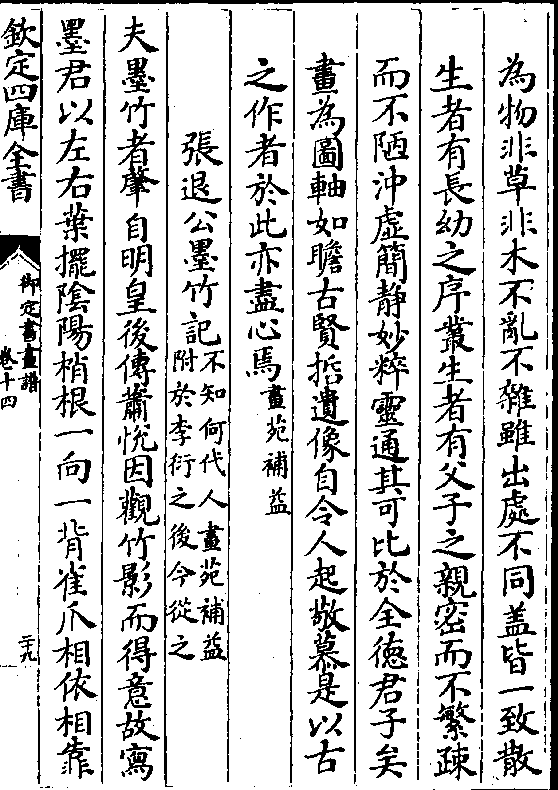 為物非草非木不亂不雜雖出處不同盖皆一致散
生者有長幼之序叢生者有父子之親密而不繁疎
而不陋沖虛簡静妙粹靈通其可比於全徳君子矣
畫為圖軸如瞻古賢哲遺像自令人起敬慕是以古
之作者於此亦盡心焉畫苑補益
張退公墨竹記不知何代人畫苑補益
附於李衎之後今從之
夫墨竹者肇自明皇後傳蕭悅因觀竹影而得意故寫
墨君以左右葉擺陰陽梢根一向一背雀爪相依相靠
欽定四庫全書
御定書畫譜
卷十四
二十九